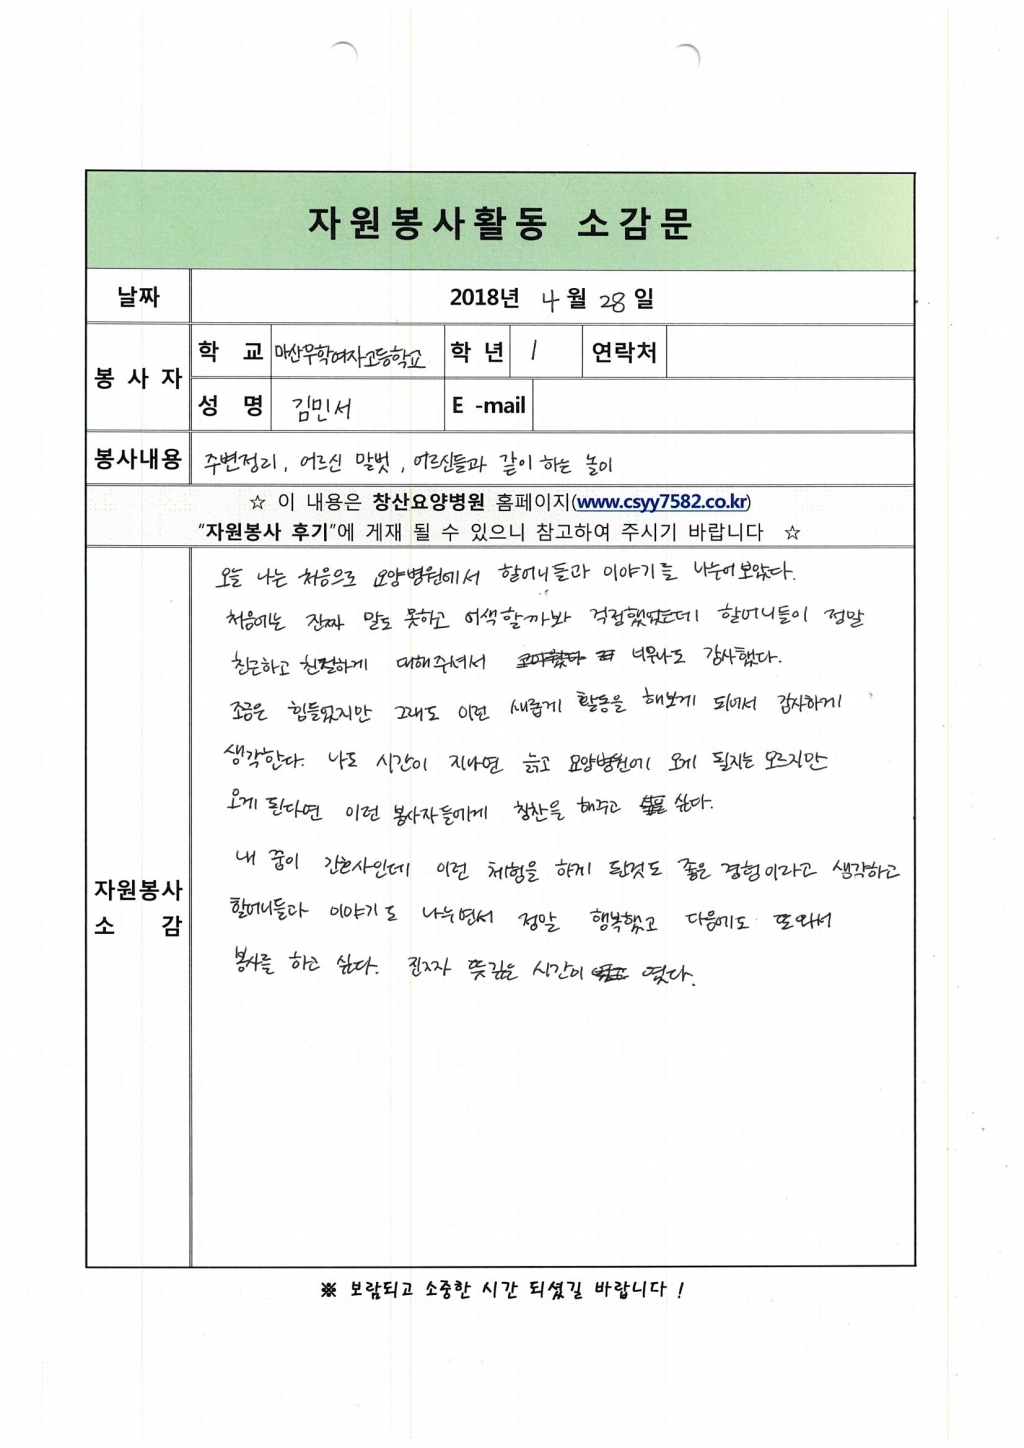 자원봉사활동 소감문
날짜 2018년 4월 28일
봉사자 학 교 마산무학여자고등학교 학년 1 연락처
성 명 김민서 E -mail
봉사내용 주변정리, 어르신 말벗, 어르신들과 같이 하는 놀이
☆ 이 내용은 창산요양병원 홈페이지(www.csyy7582.co.kr)
"자원봉사 후기"에 게재 될 수 있으니 참고하여 주시기 바랍니다 ☆
자원봉사
소 감
오늘 나는 처음으로 요양병원에서 할머니들과 이야기를 나누어 보았다.
처음에는 진짜 말도 못하고 어색할까봐 걱정했었는데 할머니들이 정말
친근하고 친절하게 대해주셔서 너무나도 감사했다.
조금은 힘들었지만 그래도 이런 새롭게 활동을 해보게 되어서 감사하게
생각한다. 나도 시간이 지나면 늙고 요양병원에 오게 될지는 모르지만
오게 된다면 이런 봉사자들에게 칭찬을 해주고 싶다.
내 꿈이 간호사인데 이런 체험을 하게 된것도 좋은 경험이라고 생각하고
할머니들과 이야기도 나누면서 정말 행복했고 다음에도 또와서
봉사를 하고 싶다. 진짜 뜻깊은 시간이 였다.
※ 보람되고 소중한 시간 되셨길 바랍니다 !